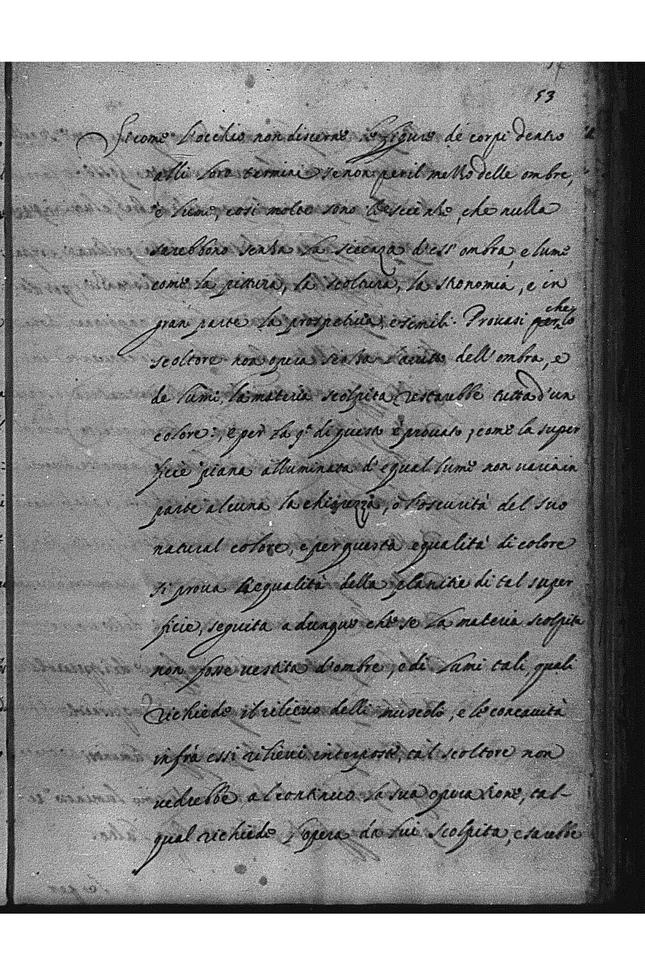 53
Sicome l'occhio non discerne le figure de corpi dentro
alli loro termini se non per il mezzo delle ombre,
e lumi, così molte sono le scienze, che nulla
serebbono senza la scienza d'ess' ombra, e lume
come la pittura, la scoltura, la stronomia, e in
gran parte la prospetiva, e simili. Provasi che lo
scoltore non opera senza l'aiuto dell'ombra, e
de lumi, la materia scolpita restarebbe tutta d'un
colore, e per la 9ª di questo è provato, come la super
ficie piana alluminata d'egual lume non varia in
parte alcuna la chiarezza, o l'oscurità del suo
natural colore, e per questa equalità di colore
si prova l'equalità della planitie di tal super
ficie, seguita adunque che se la materia scolpita
non fosse vestita d'ombre, e di lumi tali, quali
richiede il rilievo delli muscoli, e le concavità
infrà essi rilievi interposte, tal scoltore non
vedrebbe al continuo la sua operazione, tal
qual richiede l'opera da lui scolpita, e sarebbe